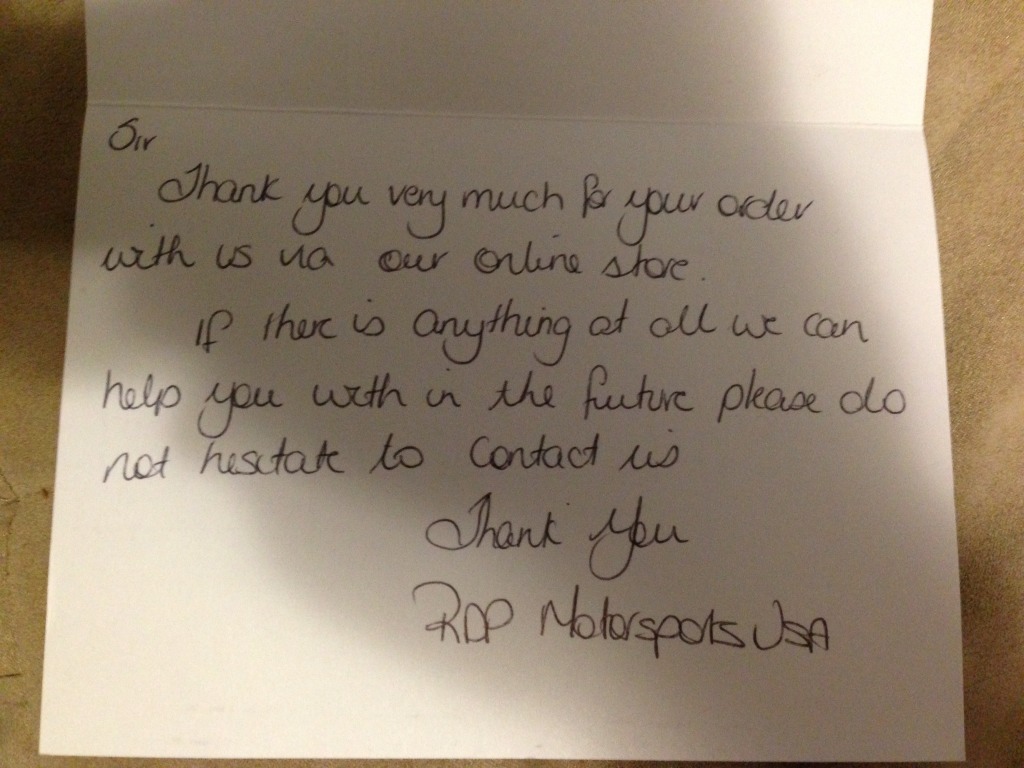 Sir
Thank you very much for your order
with us via our online store.
If there is anything at all we can
help you with in the future please do
not hesitate to contact us
Thank you
RDP Motorsports USA